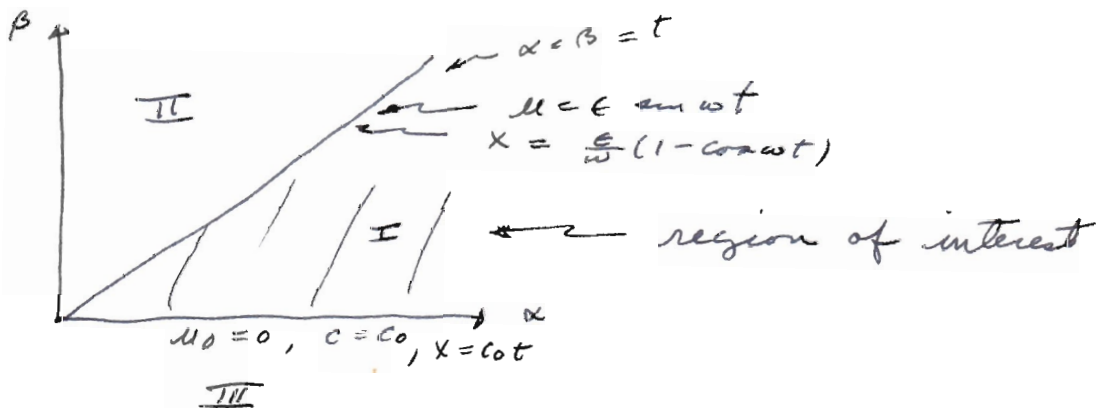 β
α = β = t
II
u = ε sin ωt
x = ε/ω (1 - cos ωt)
I
region of interest
α
u₀ = 0, c = c₀, x = c₀t
III